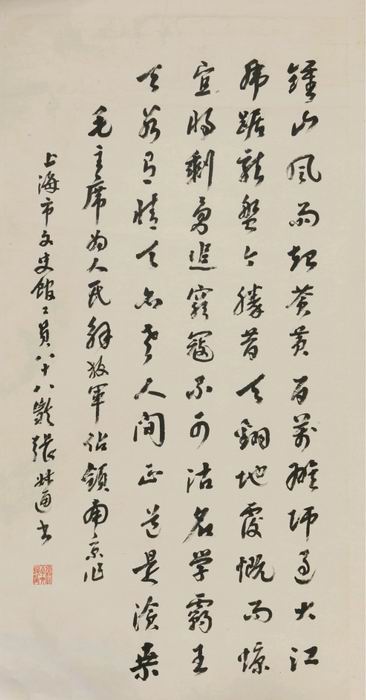 鍾山風雨起蒼黃百萬雄師過大江
虎踞龍盤今勝昔天翻地覆慨而慷
宜將剩勇追窮寇不可沽名學霸王
天若有情天亦老人間正道是滄桑
毛主席為人民解放軍佔領南京作
上海市文史館々員八十八歲張叔通書